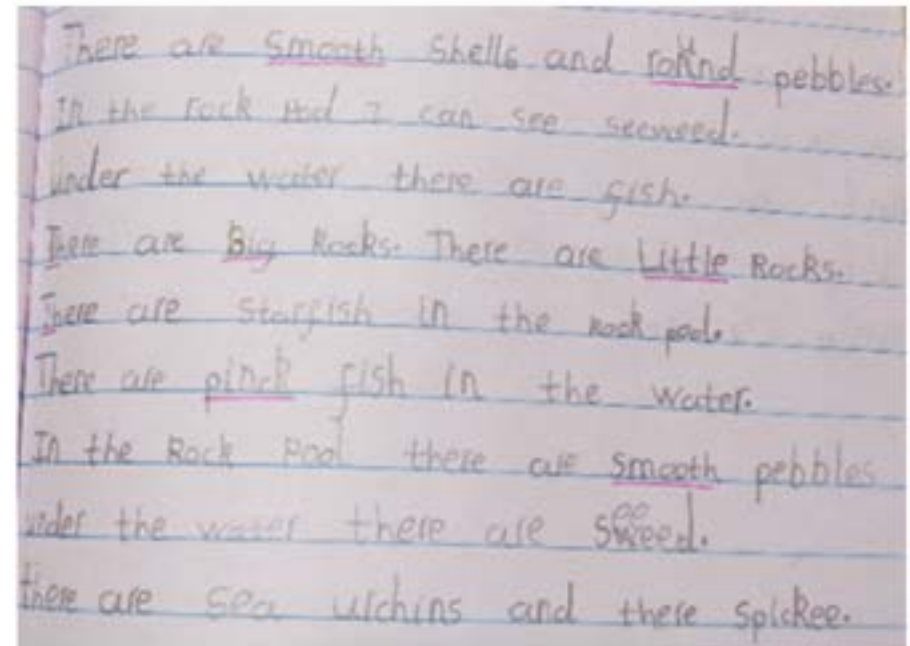 There are smooth shells and round pebbles.
In the rock pool I can see seeweed.
under the water there are fish.
There are Big Rocks. There are Little Rocks.
There are starfish in the rock pool.
There are pinck fish in the water.
In the Rock Pool there are smooth pebbles
under the water there are
there are sea urchins and there spickee.